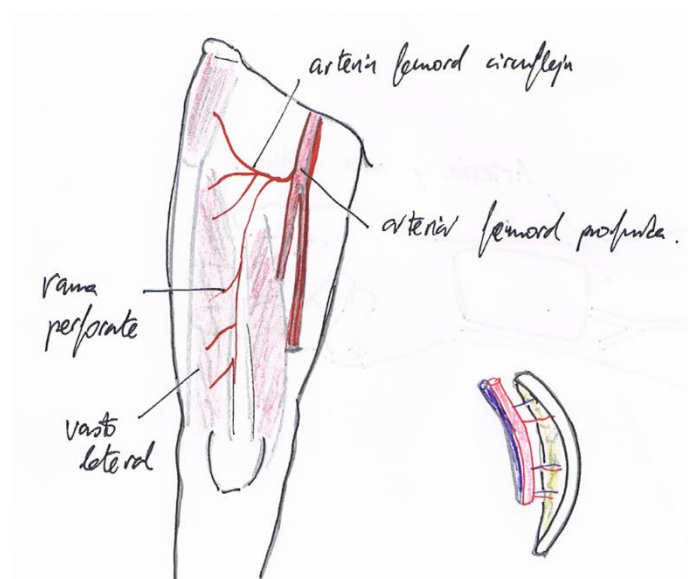 arteria femoral circunfleja
arteria femoral profunda.
rama
perforante
vasto
lateral